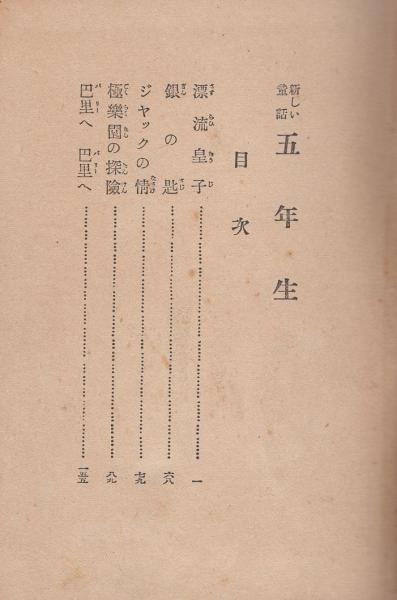 新しい童話 五年生
目次
漂流皇子 一
銀の匙 六八
ジヤックの情 七九
極樂園の探險 八九
巴里へ 巴里へ 一五五